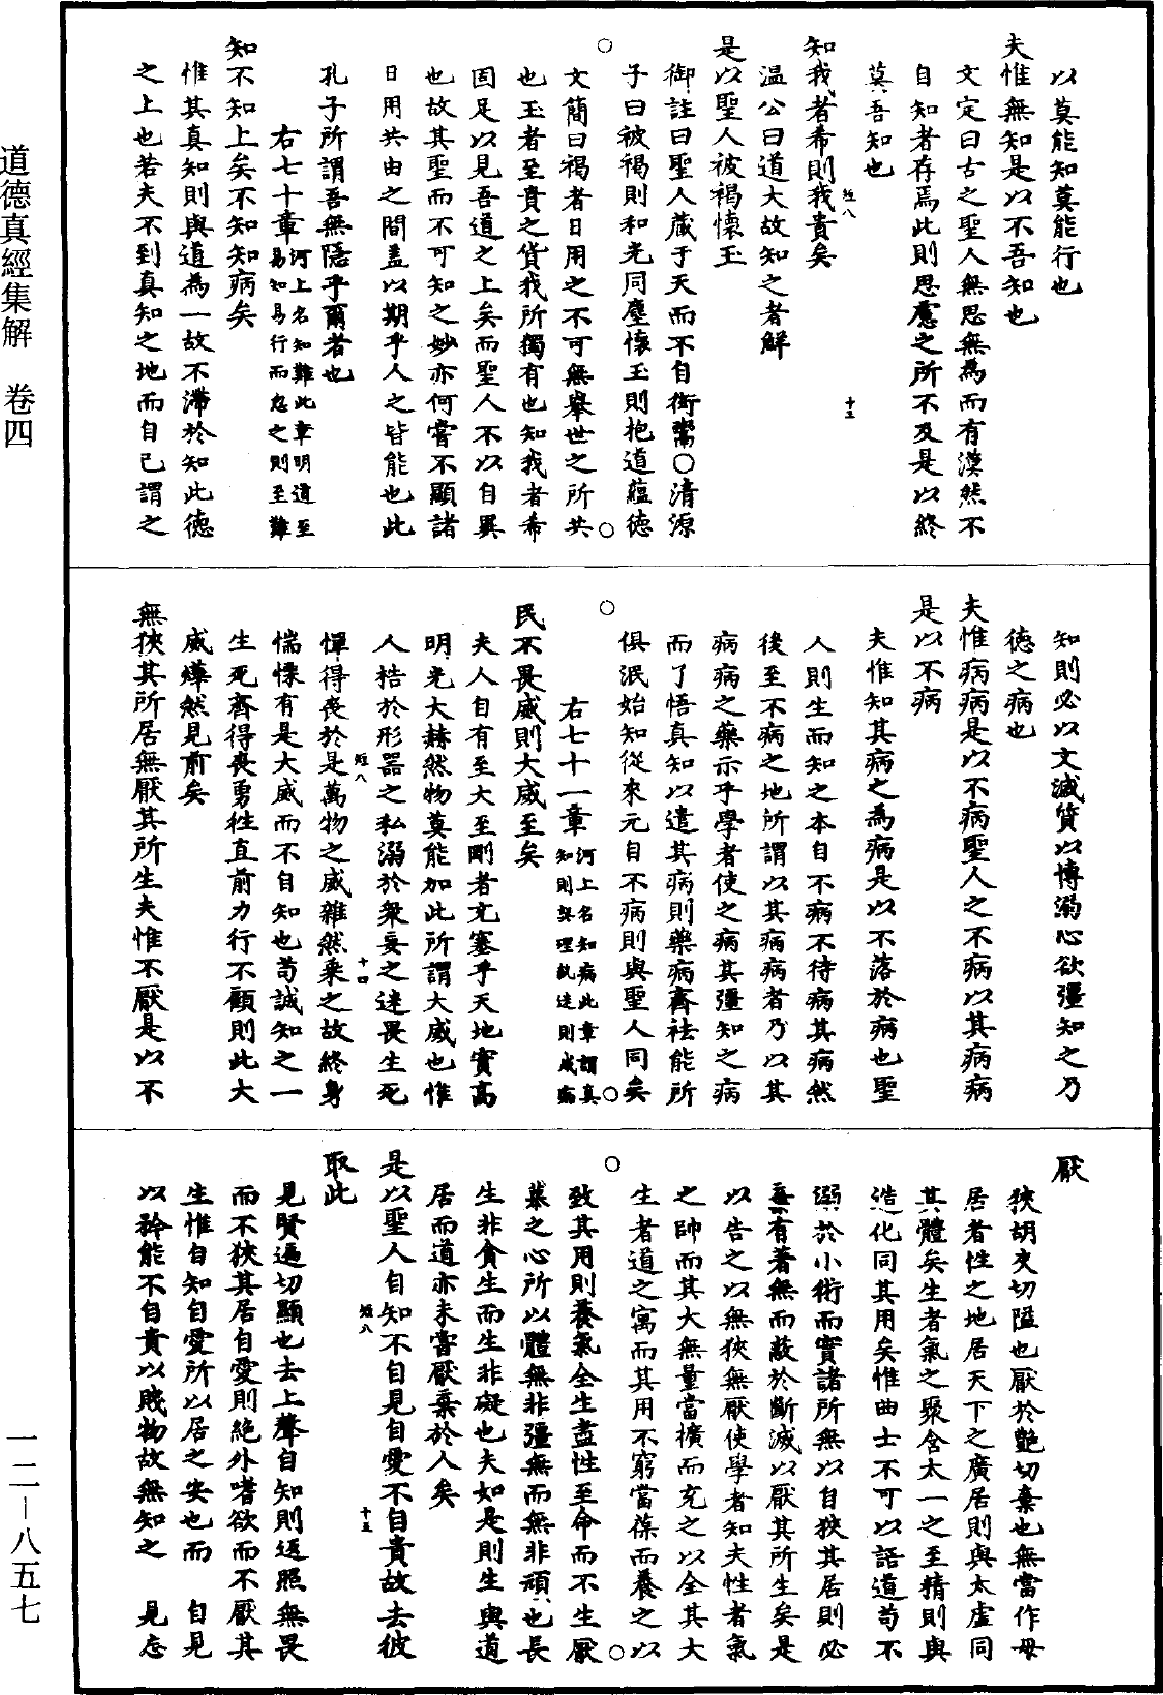 道德真經集解　卷四
一二—八五七
以莫能知莫能行也
夫惟無知是以不吾知也
文定曰古之聖人無思無為而有漠然不
自知者存焉此則思慮之所不及是以終
莫吾知也
知我者希則我貴矣
短八
十三
溫公曰道大故知之者鮮
是以聖人被褐懷玉
御註曰聖人藏于天而不自衒鬻○清源
子曰被褐則和光同塵懷玉則抱道蘊德
文簡曰褐者日用之不可無舉世之所共
也玉者至貴之貨我所獨有也知我者希
固足以見吾道之上矣而聖人不以自異
也故其聖而不可知之妙亦何嘗不顯諸
日用共由之間蓋以期乎人之皆能也此
孔子所謂吾無隱乎爾者也
右七十章河上名知難此章明道至
易知易行而忽之則至難
知不知上矣不知知病矣
惟其真知則與道為一故不滯於知此德
之上也若夫不到真知之地而自己謂之
知則必以文滅質以博溺心欲彊知之乃
德之病也
夫惟病病是以不病聖人之不病以其病病
是以不病
夫惟知其病之為病是以不落於病也聖
人則生而知之本自不病不待病其病然
後至不病之地所謂以其病病者乃以其
病病之藥示乎學者使之病其彊知之病
而了悟真知以遣其病則藥病齊祛能所
俱泯始知從來元自不病則與聖人同矣
右七十一章河上名知病此章謂真
知則與理執迷則成病
民不畏威則大威至矣
夫人自有至大至剛者充塞乎天地實高
明光大赫然物莫能加此所謂大威也惟
人梏於形器之私溺於衆妄之迷畏生死
短八
十四
憚得喪於是萬物之威雜然乘之故終身
惴慄有是大威而不自知也苟誠知之一
生死齊得喪勇往直前力行不顧則此大
威燁然見前矣
無狹其所居無厭其所生夫惟不厭是以不
厭
狹胡夾切隘也厭於艶切棄也無當作毋
居者性之地居天下之廣居則與太虛同
其體矣生者氣之聚含太一之至精則與
造化同其用矣惟曲士不可以語道苟不
溺於小術而實諸所無以自狹其居則必
棄有著無而蔽於斷滅以厭其所生矣是
以告之以無狹無厭使學者知夫性者氣
之帥而其大無量當擴而充之以全其大
生者道之寓而其用不窮當葆而養之以
致其用則養氣全生盡性至命而不生厭
慕之心所以體無非彊無而無非頑也長
生非貪生而生非礙也夫如是則生與道
居而道亦未嘗厭棄於人矣
是以聖人自知不自見自愛不自貴故去彼
短八
十五
取此
見賢遍切顯也去上聲自知則返照無畏
而不狹其居自愛則絶外嗜欲而不厭其
生惟自知自愛所以居之安也而　自見
以矜能不自貴以賤物故無知之　見忘